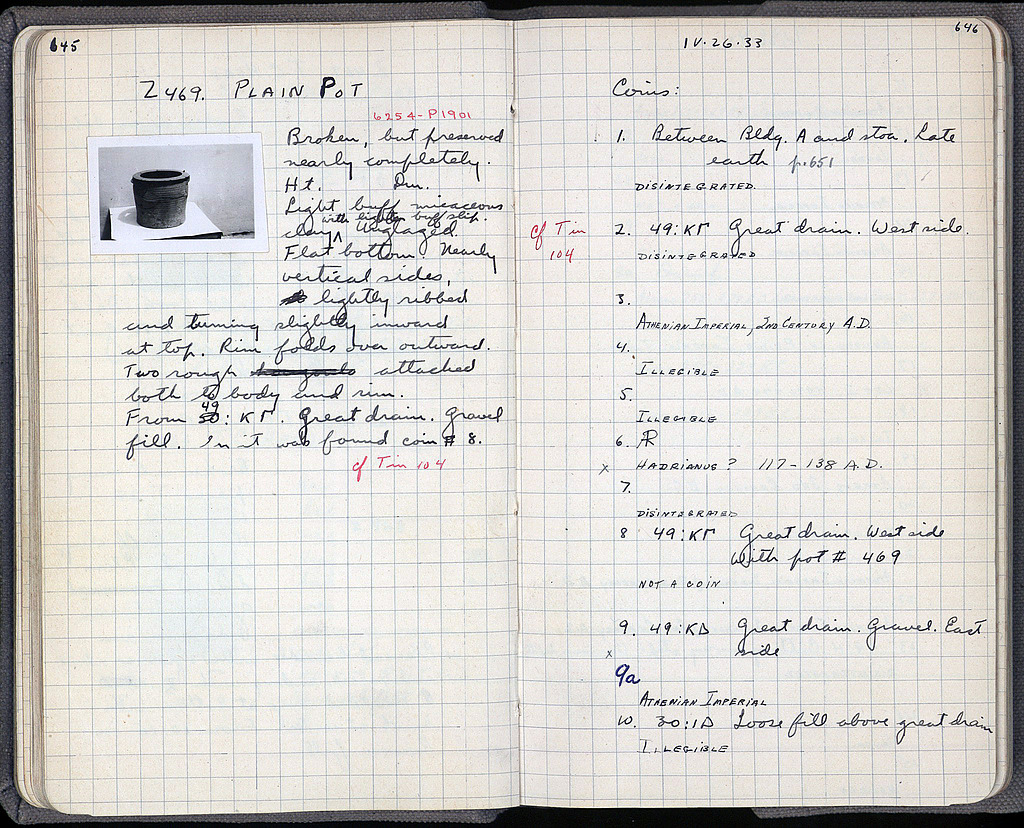 645
Z 469. PLAIN POT
6254-P1901
Broken, but preserved
nearly completely.
Ht. Dm.
Light buff micaceous
with lighter buff slip.
clay ^ Unglazed.
Flat bottom. Nearly
vertical sides,
lightly ribbed
and turning slightly inward
at top. Rim folds over outward.
Two rough attached
both to body and rim.
49
From 50: ΚΓ. Great drain. Gravel
fill. In it was found coin # 8.
cf Tin 104
646
IV·26·33
Coins:
1. Between Bldg. A and stoa. Late
earth p.651
DISINTEGRATED.
cf Tin
104
2. 49:ΚΓ Great drain. West side.
DISINTEGRATED
3.
ATHENIAN IMPERIAL, 2ND CENTURY A.D.
4.
ILLEGIBLE
5.
ILLEGIBLE
6. AR
x HADRIANUS? 117-138 A.D.
7.
DISINTEGRATED
8 49:ΚΓ Great drain. West side
with pot # 469
NOT A COIN
9. 49:ΚΔ Great drain. Gravel. East
side
x
9a
ATHENIAN IMPERIAL
10. 30:ΙΔ Loose fill above great drain
ILLEGIBLE